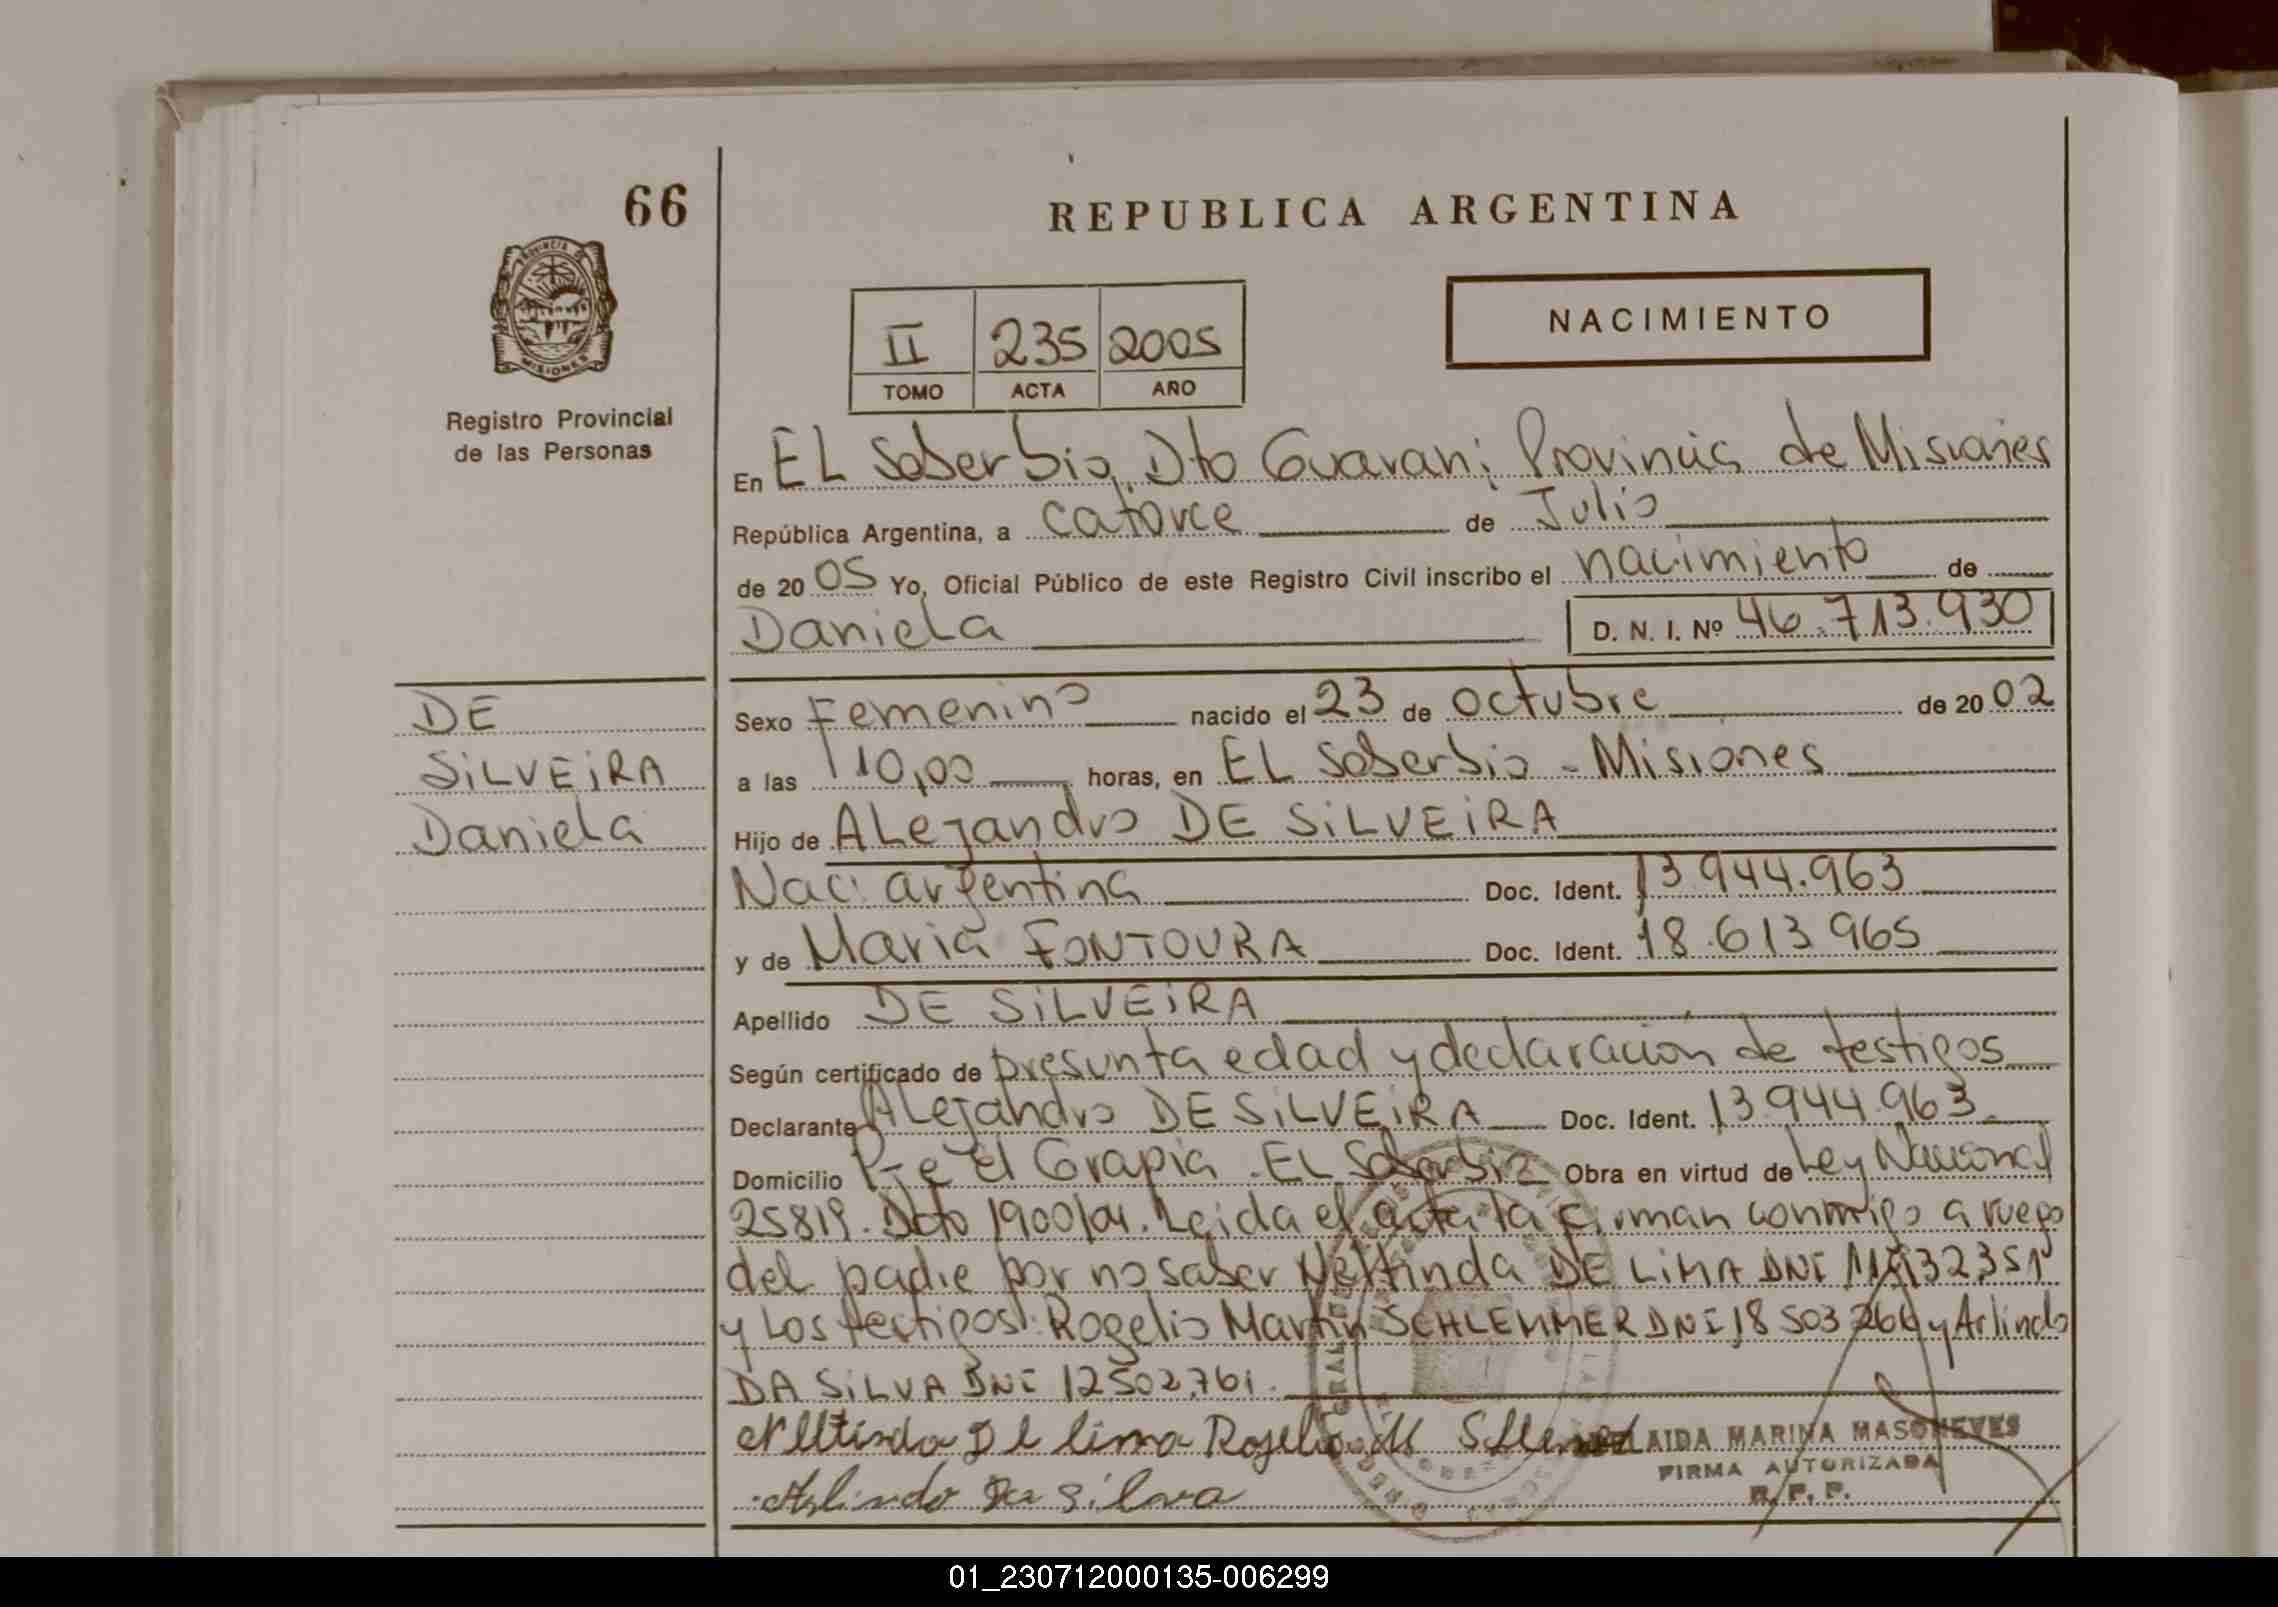 66
REPUBLICA ARGENTINA
PROVINCIA DE
MISIONES
Registro Provincial
de las Personas
II 235 2005
TOMO ACTA AÑO
NACIMIENTO
En EL Soberbio, Dto Guarani, Provincia de Misiones
República Argentina, a catorce de Julio
de 20 05 Yo, Oficial Público de este Registro Civil inscribo el nacimiento de
Daniela D. N. I. Nº 46.713.930
DE
SiLVEiRA
Daniela
Sexo Femenino nacido el 23 de octubre de 20 02
a las 10,00 horas, en EL Soberbio - Misiones
Hijo de ALejandro DE SiLVEiRA
Nac: argentina Doc. Ident. 13.944.963
y de Maria FONTOURA Doc. Ident. 18.613.965
Apellido DE SiLVEiRA
Según certificado de presunta edad y declaración de testigos
Declarante ALejandro DE SiLVEiRA Doc. Ident. 13.944.963
Domicilio Pje el Grapia. EL Soberbio Obra en virtud de Ley Nacional
25819. Dcto 1900/04. Leida el acta la firman conmigo a ruego
del padre por no saber Neltinda DE LiMA DNI
y Los testigos: Rogelio Martin SCHLEMMER DNI 18 503 266 y Arlindo
DA SiLVA DNI 12502.761.
Neltinda De lima Rogelio M
Arlindo Da silva
AIDA MARINA MASONEVES
FIRMA AUTORIZADA
R. P. P.
01_230712000135-006299